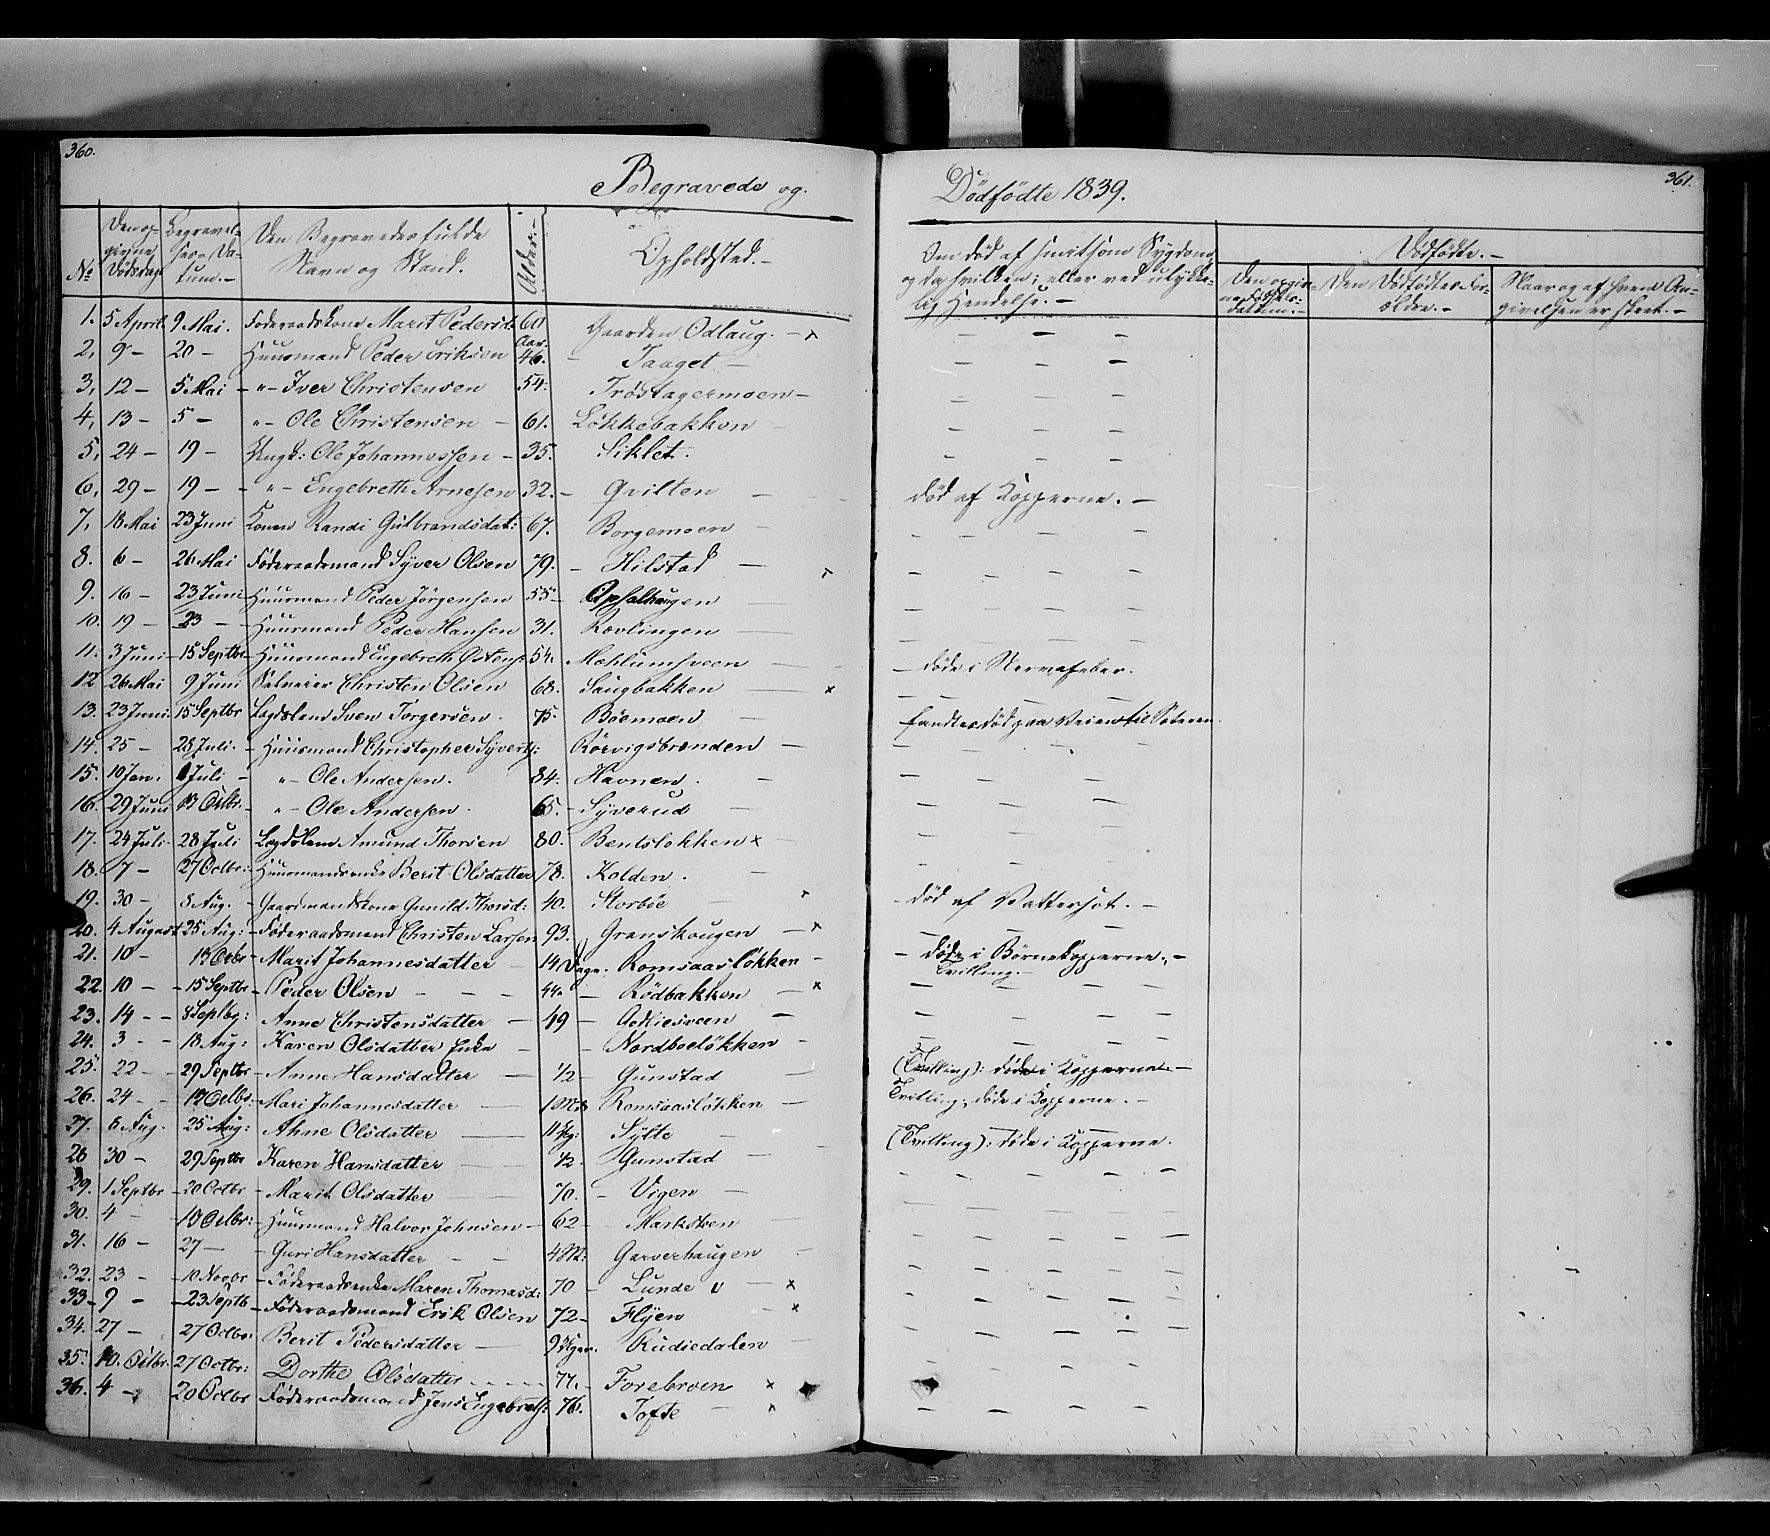 360.
Begravede og
Dødfødte 1839.
361.
No
Den op-
givne
Dødsdag
Begravel-
ses-Da-
tum.-
Den Begravedes fulde
Navn og Stand.
Alder.-
Opholdsted.-
Om død af smitsom Sygdom,
og da hvilken; eller ved ulykke-
lig Hendelse.-
Dødfødte.-
Den opgiv-
ne Fødsels-
datum.-
Den Dødfødtes For-
ældre.-
Naar og af hvem An-
givelsen er skeet.-
1. 5 April. 9 Mai. Føderaadskone Marit Pedersd: 60 Aar. Gaarden Odlaug. - x
2, 9 - 20 - Huusmand Peder Eriksen 46. - Taaget -
3, 12 - 5 Mai - " - Iver Christensen 54: Trøstagermoen -
4, 13 - 5 - " - Ole Christensen - 61. Løkkebakken -
5, 24 - 19 - Ungk: Ole Johannessen - 35. Siklet.
6, 29 - 19 - - " - Engebreth Arnesen 32. - Qvilten - død af Kopperne. -
7, 18 Mai 23 Juni Konen Randi Gulbrandsdat: 67. Borgemoen -
8. 6 - 26 Mai Føderaadsmand Syver Olsen 79. - Hilstad - x
9. 16 - 23 Juni Huusmand Peder Jørgensen 55 - Opsalhaugen -
10. 19 - 23 - Huusmand Peder Hansen 31. Rovlingen -
11. 3 Juni - 15 Septbr - Huusmand Engebreth Østens: 54. Mæhlumsveen - - døde i Nervefeber.
12 26 Mai 9 Juni Selveier Christen Olsen 68. Saugbakken - x
13. 23 Juni. 15 Septbr Lægdslem Sven Torgersen. 75. Bøemoen - fandtes død paa Veien til Sæteren.
14. 25 - 28 Juli. - Huusmand Christopher Syverts: Rørvigsbrænden -
15. 10 Jan. Juli - " - Ole Andersen. 84. Havnen. -
16. 29 Juni 13 Octbr. - " - Ole Andersen. 65. - Syverud -
17. 24 Juli. 28 Juli Lægdslem Amund Thorsen 80. Bentsløkken x -
18. 7 - 27 Octbr: Huusmandsenke Berit Olsdatter 78. Kolden. -
19. 30 - 8 Aug. - Gaardmandskone Gunild Thorsd: 40. Storbøe - x - død af Vattersot. -
20. 4 August 25 Aug: - Føderaadsmand Christen Larsen 93. Granskougen - x
21. 10 - 13 Octbr - Marit Johannesdatter - 14 Dage. Romsaasløkken - - døde i Børnekopperne, -
Tvilling. -
22. 10 - - 15 Septbr - Peder Olsen - - - 44. - Rødbakken - x
23. 14 - - 8 Septbr: Anne Christensdatter - 49 -
24. 3 - - 18 Aug: - Karen Olsdatter Enke - - Nordboeløkken -
25. 22 - 29 Septbr - Anne Hansdatter - 1/2 - Gunstad - (Tvilling): døde i Kopperne -
26. 24 - - 13 Octbr. - Mari Johannesdatter - 1 Md Romsaasløkken - Tvilling, døde i Kopperne. -
27. 8 Aug. 25 Aug: - Ahne Olsdatter - Sylte - (Tvilling): døde i Kopperne.
28 30 - 29 Septbr Karen Hansdatter - 1/2. Gunstad -
29. 1 Septbr - 20 Octbr - Marit Olsdatter - 70. - Vigen -
30. 4 - - 13 Octbr: - Huusmand Halvor Johnsen - 62 -
31. 16 - 27 - - Guri Hansdatter - - 4 M: Garverhaugen -
32. 23 - - 10 Novbr - Føderaadsenke Maren Thomasd: 70 - Lunde - x
33 - 9 - - 23 Septb - Føderaadsmand Erik Olsen 72 - Flÿen - x
34. 27 - 27 Octbr: Berit Pedersdatter - Rudiedalen -
35. 10. Octbr. 27 Octbr: Dorthe Olsdatter - - - - 77. - Forebroen x
36. 4 - 20 Octbr - Føderaadsmand Jens Engebreths: 76. Tofte - x